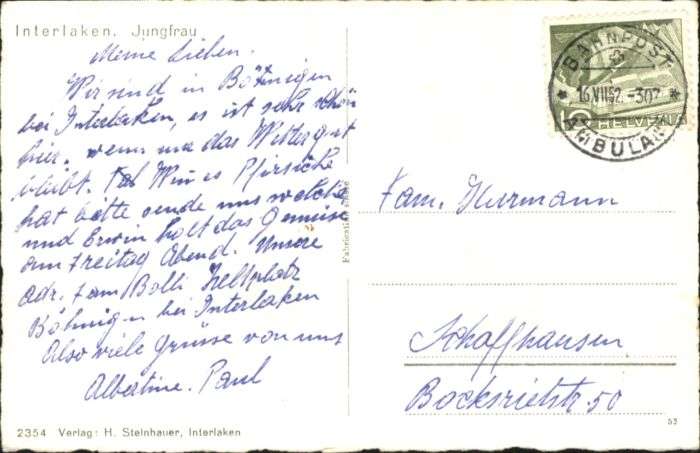 Interlaken. Jungfrau
Meine Lieben.
Wir sind in Bötnigen
bei Interlaken, es ist sehr schön
hier. wenn nur das Wetter gut
bleibt. Wenn es Pfirsiche
hat bitte sende uns welche
und Erwin holt das Gemüse
am Freitag Abend. Unsere
adr. Fam Bolli Zeltplatz
Böhnigen bei Interlaken
Also viele Grüsse von uns
Albertine. Paul
2354 Verlag: H. Steinhauer, Interlaken
BAHNPOST
16.VII52.-307
AMBULANT
HELVETIA
Fam. Hurrmann
Schaffhausen
Bocksrietstr 50
52